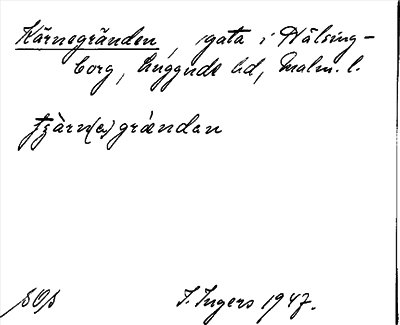 Kärnegränden, gata i Hälsing-
borg, Luggude hd, Malm. l.
tjàrn(e)grǽndan
SOS
I. Ingers 1947.